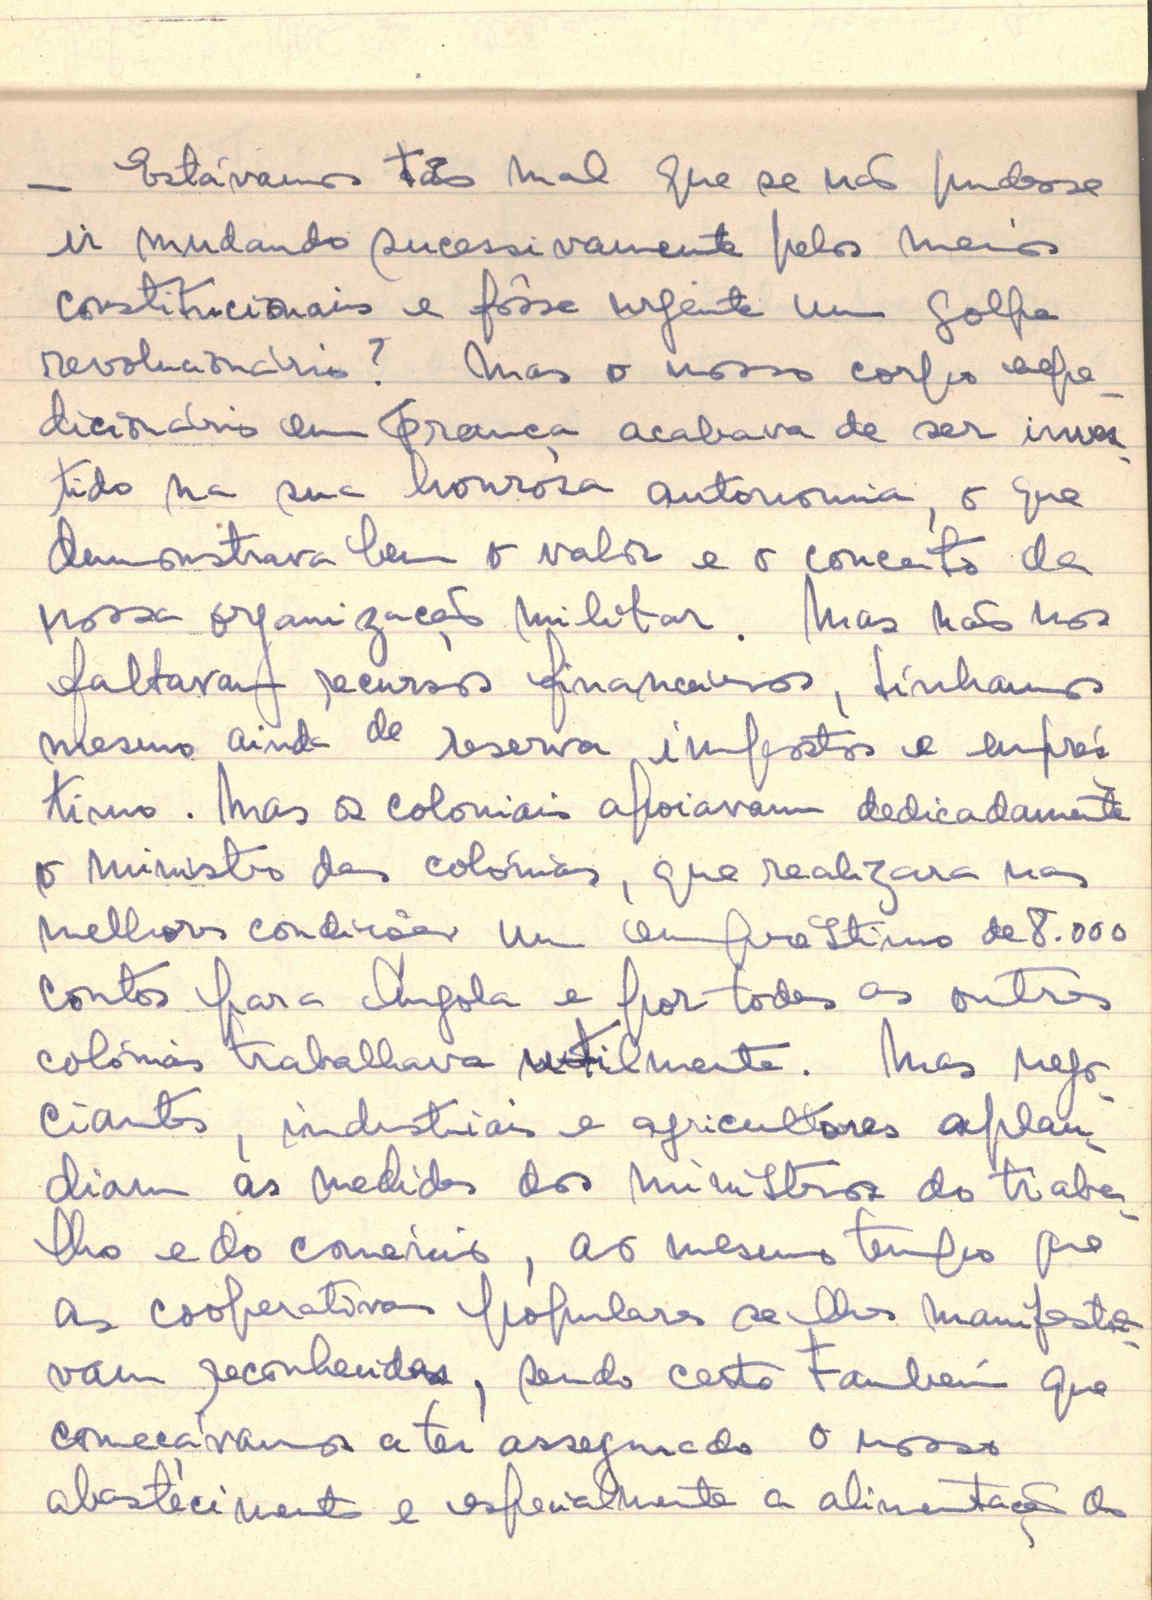 — Estávamos tão mal que se não pudesse
ir mudando sucessivamente pelos meios
constitucionais e fôsse urgente um golpe
revolucionário? Mas o nosso corpo expe-
dicionário em França acabava de ser inves-
tido na sua honrosa autonomia, o que
demonstrava bem o valor e o conceito da
nossa organização militar. Mas não nos
faltavam recursos financeiros, tínhamos
mesmo ainda de reserva impostos e emprés-
timo. Mas os coloniais apoiavam dedicadamente
o ministro das colónias, que realizara nas
melhores condições um empréstimo de 8.000
contos para Angola e por todas as outras
colónias trabalhava utilmente. Mas nego-
ciantes, industriais e agricultores aplau-
diam as medidas dos ministros do traba-
lho e do comércio, ao mesmo tempo que
as cooperativas populares se lhes manifesta-
vam reconhecidas, sendo certo também que
começávamos a ter assegurado o nosso
abastecimento e especialmente a alimentação do